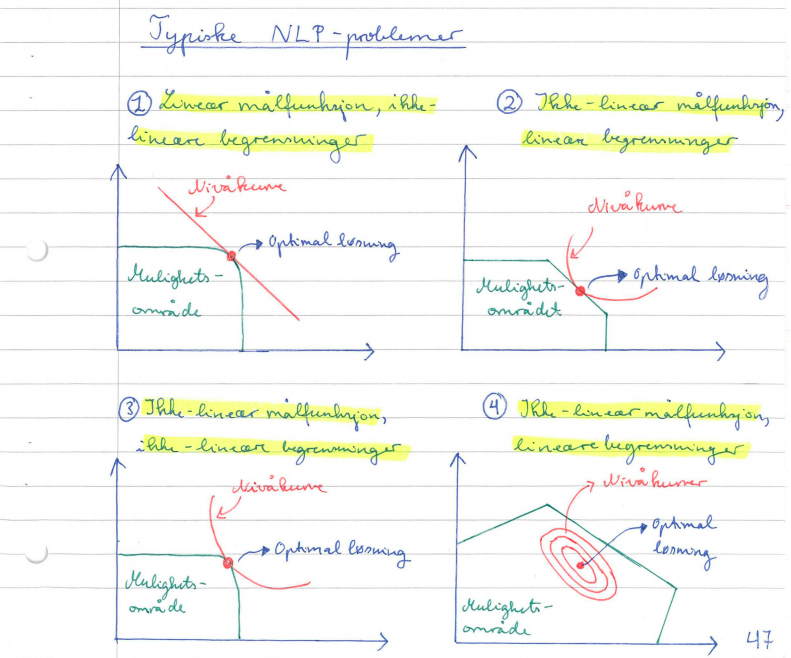 Typiske NLP-problemer
① Lineær målfunksjon, ikke-
lineære begrensninger
Nivåkurve
Optimal løsning
Mulighets-
område
② Ikke-lineær målfunksjon,
lineære begrensninger
Nivåkurve
Optimal løsning
Mulighets-
området
③ Ikke-lineær målfunksjon,
ikke-lineære begrensninger
Nivåkurve
Optimal løsning
Mulighets-
område
④ Ikke-lineær målfunksjon,
lineære begrensninger
Nivåkurver
Optimal
løsning
Mulighets-
område
47